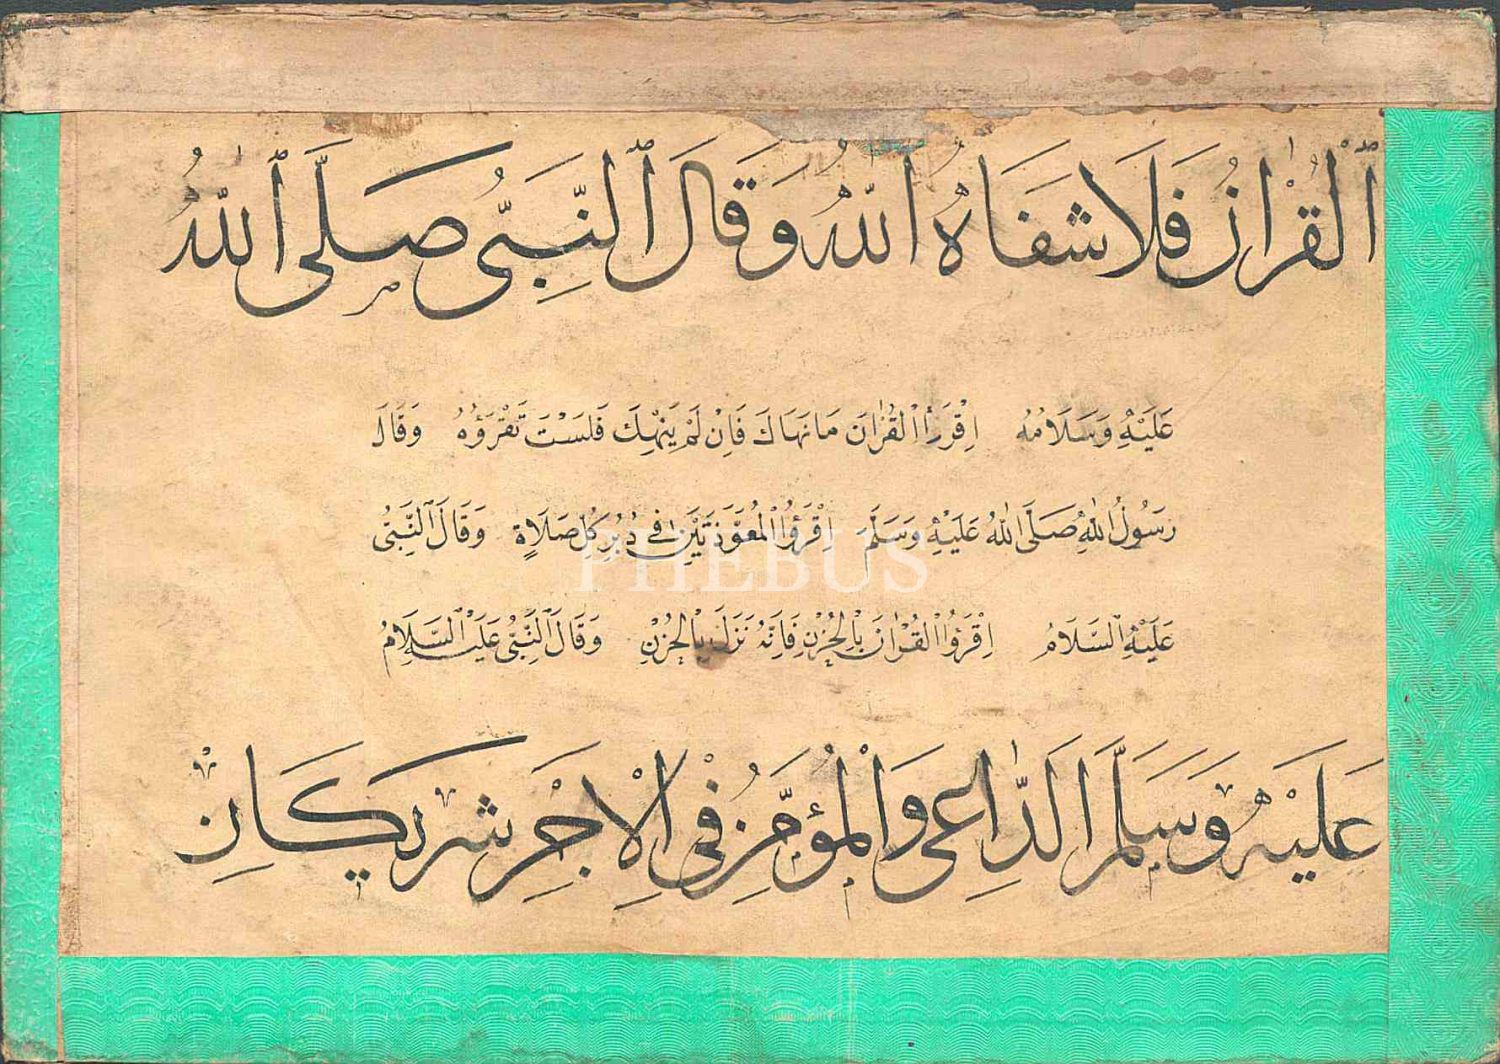 ٱلْقُرْاٰنُ فَلَا شَفَاهُ اللّٰهُ وَقَالَ ٱلنَّبِىُّ صَلَّى ٱللّٰهُ
عَلَيْهِ وَسَلَامُهُ اِقْرَؤُا الْقُرْاٰنَ مَا نَهَاكَ فَاِنْ لَمْ يَنْهِكَ فَلَسْتَ تَقْرَؤُهُ وَقَالَ
رَسُولُ اللّٰهِ صَلَّى اللّٰهُ عَلَيْهِ وَسَلَّمَ اِقْرَؤُا الْمُعَوَّذَتَيْنِ فِى دُبُرِ كُلِّ صَلَاةٍ وَقَالَ ٱلنَّبِىُّ
PHEBUS
عَلَيْهِ السَّلَامُ اِقْرَؤُا الْقُرْاٰنَ بِالْحُزْنِ فَاِنَّهُ نَزَلَ بِالْحُزْنِ وَقَالَ ٱلنَّبِىُّ عَلَيْهِ السَّلَامُ
عَلَيْهِ وَسَلَّمَ اَلدَّاعِى وَالْمُؤَمِّنُ فِى الْاَجْرِ شَرِيكَانِ